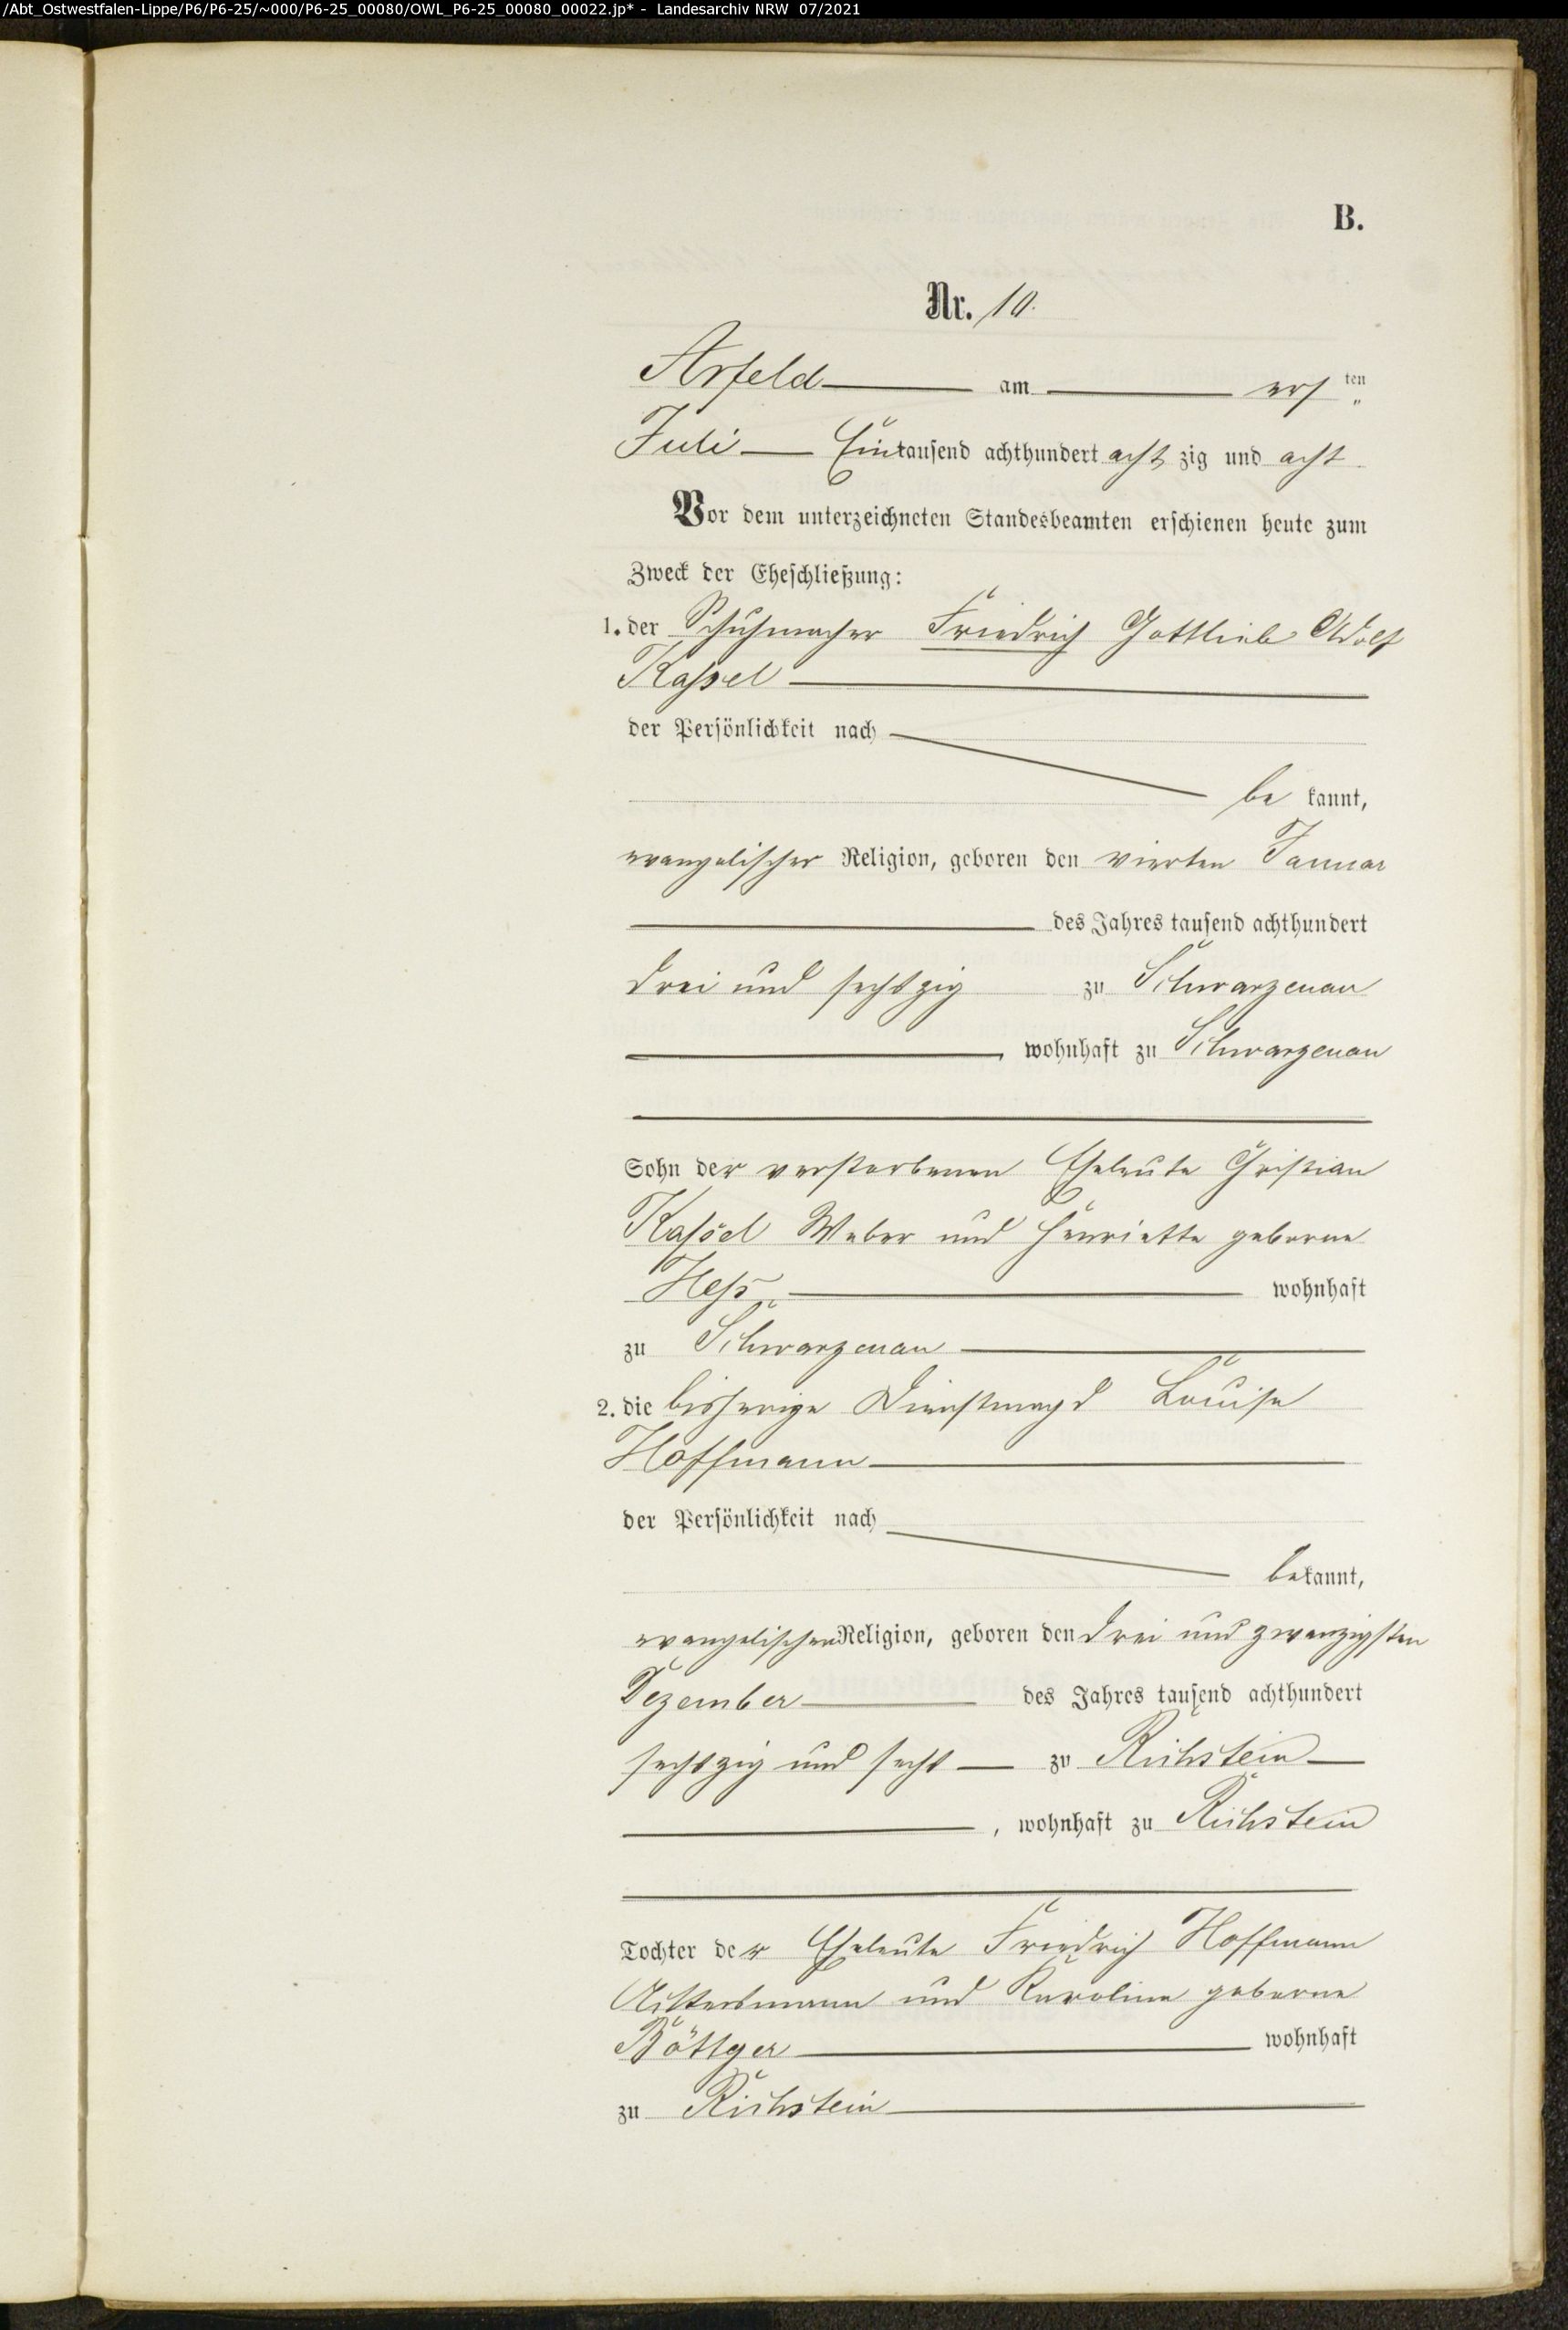 /Abt_Ostwestfalen-Lippe/P6/P6-25/~000/P6-25_00080/OWL_P6-25_00080_00022.jp* - Landesarchiv NRW 07/2021
B.
Nr. 10.
Arfeld am ersten
Juli Eintausend achthundert achtzig und acht
Vor dem unterzeichneten Standesbeamten erschienen heute zum
Zweck der Eheschließung:
1. der Schuhmacher Friedrich Gottlieb Adolf
Kassel
der Persönlichkeit nach
be kannt,
evangelischer Religion, geboren den vierten Januar
des Jahres tausend achthundert
drei und sechszig zu Schwarzenau
, wohnhaft zu Schwarzenau
Sohn der verstorbenen Eheleute Christian
Kassel Weber und Henriette geborne
Hess wohnhaft
zu Schwarzenau
2. die bisherige Dienstmagd Louise
Hoffmann
der Persönlichkeit nach
bekannt,
evangelischen Religion, geboren den drei und zwanzigsten
Dezember des Jahres tausend achthundert
sechszig und sechs zu Richstein
, wohnhaft zu Richstein
Tochter der Eheleute Friedrich Hoffmann
Ackersmann und Karoline geborne
Böttger wohnhaft
zu Richstein